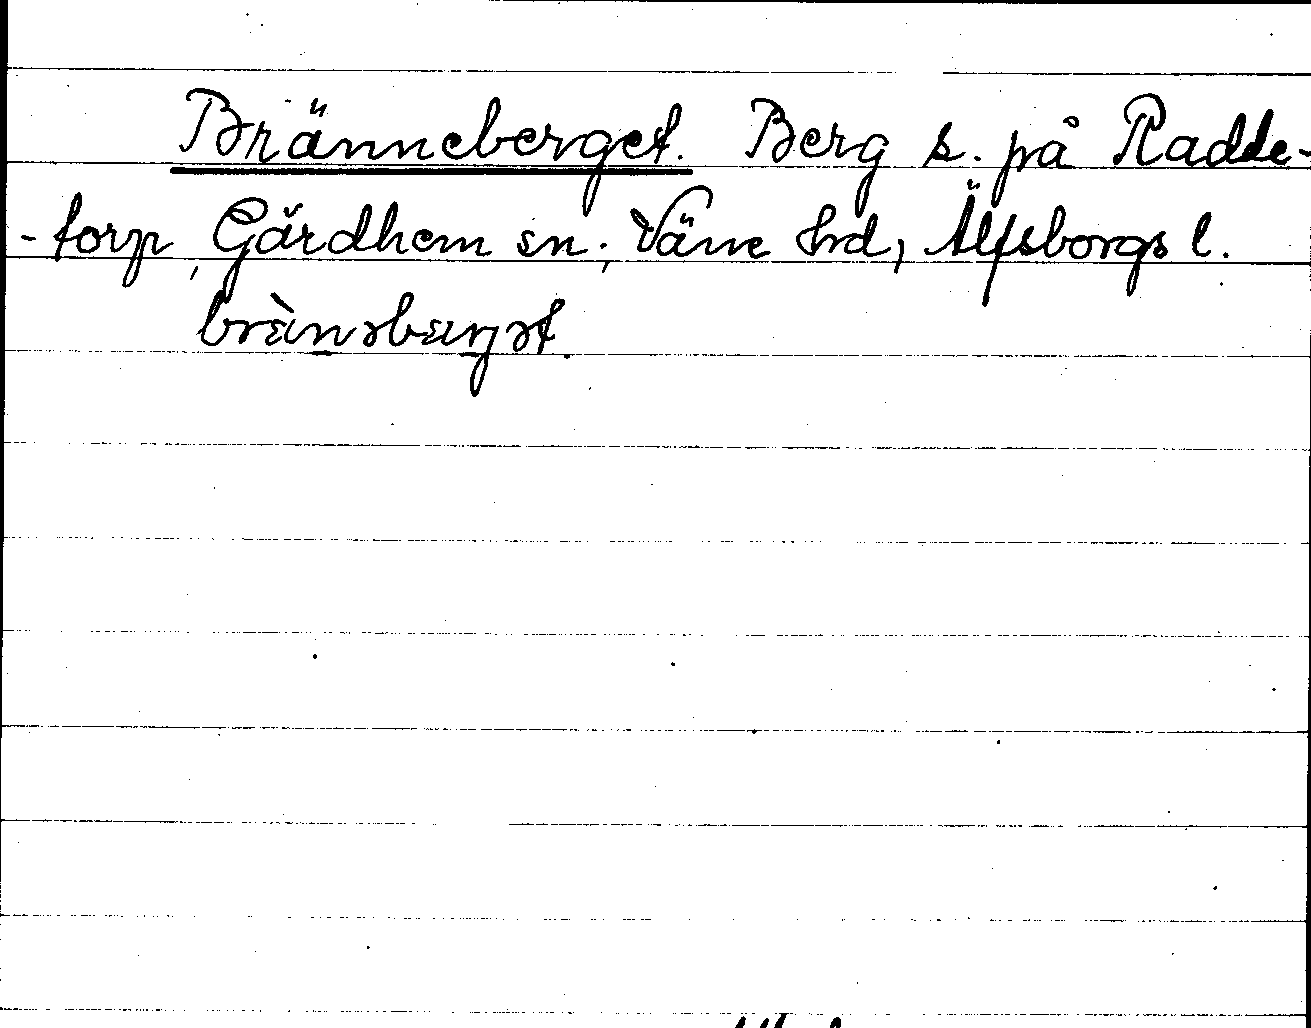 Bränneberget. Berg s. på Radde-
-torp, Gärdhem sn; Väne hrd, Älfsborgs l.
brὲnəbærjət.